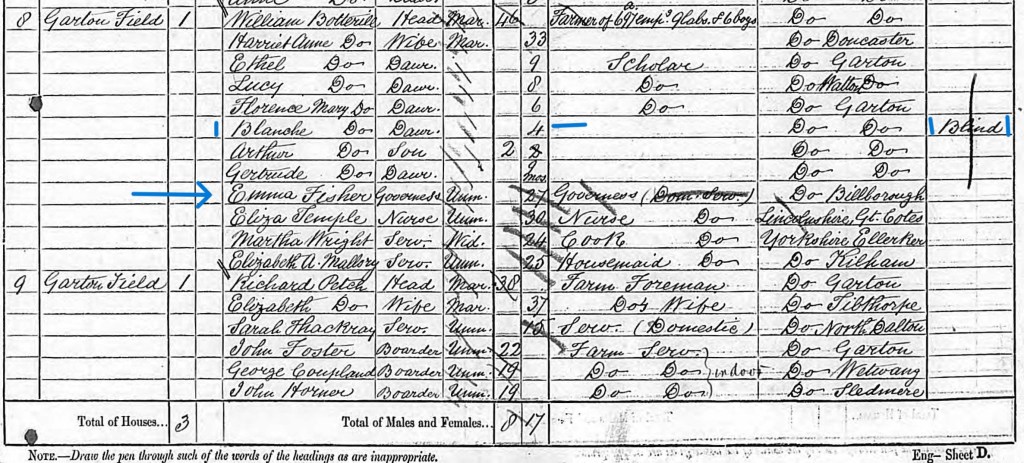 8 Garton Field 1 William Botterill Head Mar. 46 Farmer of 697 emp. 9 labs. & 6 boys Do Do
Harriet Anne Do Wife Mar. 33 Do Doncaster
Ethel Do Daur. 9 Scholar Do Garton
Lucy Do Daur. 8 Do Do Watton Do
Florence Mary Do Daur. 6 Do Do Garton
Blanche Do Daur. 4 Do Do Blind
Arthur Do Son 2 Do Do
Gertrude Do Daur. mos Do Do
Emma Fisher Governess Unm. 27 Governess (Dom. Serv.) Do Billborough
Eliza Temple Nurse Unm. 30 Nurse Do Lincolnshire, Gt. Cotes
Martha Wright Serv. Wid. 24 Cook Do Yorkshire Ellerker
Elizabeth A. Mallory Serv. Unm. 25 Housemaid Do Do Kilham
9 Garton Field 1 Richard Petch Head Mar. 38 Farm Foreman Do Garton
Elizabeth Do Wife Mar. 37 Do's Wife Do Tibthorpe
Sarah Thackray Serv. Unm. 15 Serv. (Domestic) Do North Dalton
John Foster Boarder Unm. 22 Farm Serv. Do Garton
George Coupland Boarder Unm. 19 Do Do indoor Do Wetwang
John Horner Boarder Unm. 19 Do Do Do Sledmere
Total of Houses... 3 Total of Males and Females... 8 17
NOTE.—Draw the pen through such of the words of the headings as are inappropriate. Eng— Sheet D.